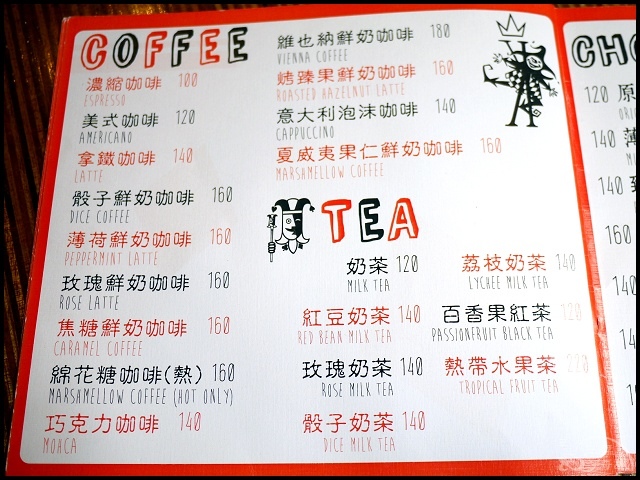 COFFEE
濃縮咖啡 100
ESPRESSO
美式咖啡 120
AMERICANO
拿鐵咖啡 140
LATTE
骰子鮮奶咖啡 160
DICE COFFEE
薄荷鮮奶咖啡 160
PEPPERMINT LATTE
玫瑰鮮奶咖啡 160
ROSE LATTE
焦糖鮮奶咖啡 160
CARAMEL COFFEE
綿花糖咖啡(熱) 160
MARSHMELLOW COFFEE (HOT ONLY)
巧克力咖啡 140
MOHCA
維也納鮮奶咖啡 180
VIENNA COFFEE
烤臻果鮮奶咖啡 160
ROASTED HAZELNUT LATTE
意大利泡沫咖啡 140
CAPPUCCINO
夏威夷果仁鮮奶咖啡 160
MARSHMELLOW COFFEE
TEA
奶茶 120
MILK TEA
紅豆奶茶 140
RED BEAN MILK TEA
玫瑰奶茶 140
ROSE MILK TEA
骰子奶茶 140
DICE MILK TEA
荔枝奶茶 140
LYCHEE MILK TEA
百香果紅茶 120
PASSIONFRUIT BLACK TEA
熱帶水果茶 220
TROPICAL FRUIT TEA
CHO
120 原
140 薄
140
160
140
140